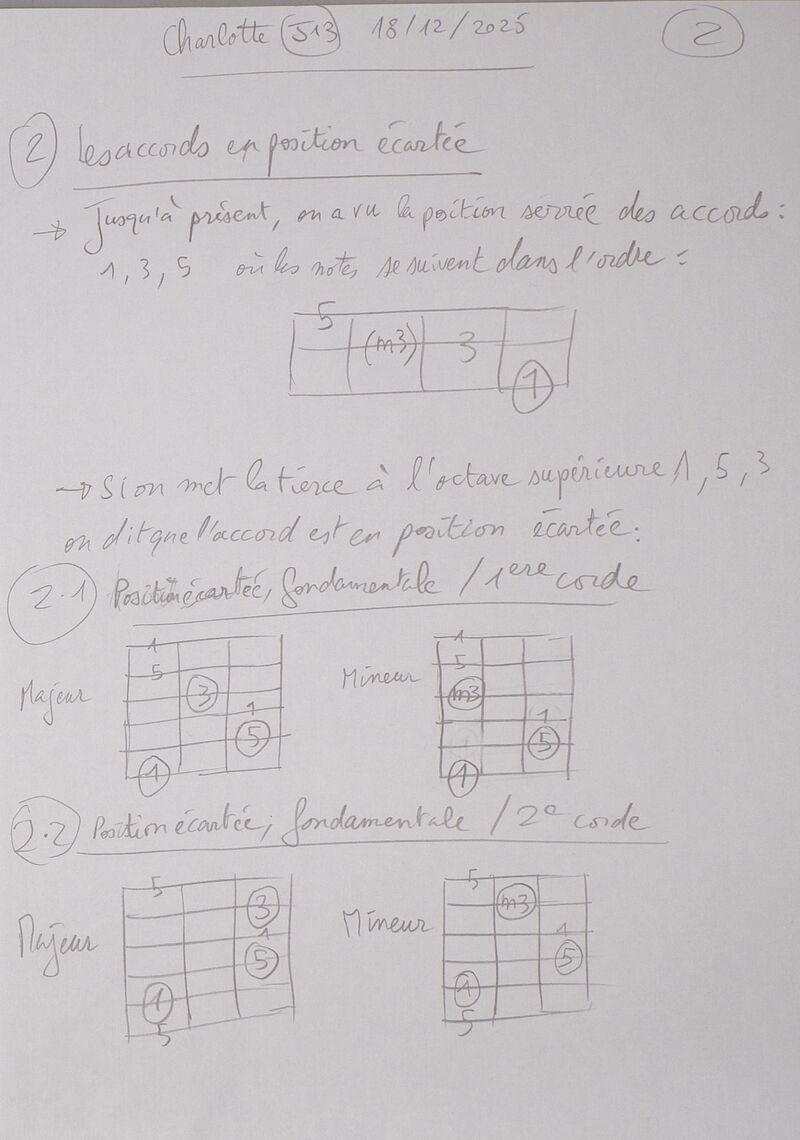 Charlotte J13 18/12/2025 2
2 Les accords en position écartée
→ Jusqu'à présent, on a vu la position serrée des accords :
1, 3, 5 où les notes se suivent dans l'ordre :
5
(m3) 3
1
→ Si on met la tierce à l'octave supérieure 1, 5, 3
on dit que l'accord est en position écartée :
2.1 Position écartée, fondamentale / 1ere corde
Majeur
1
5
3
1
5
1
Mineur
1
5
m3
1
5
1
2.2 Position écartée, fondamentale / 2e corde
Majeur
5
3
1
5
1
5
Mineur
5
m3
1
5
1
5